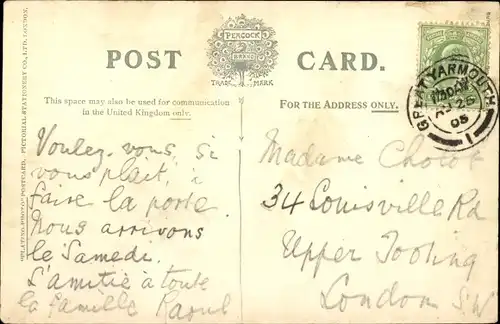 POST CARD.
PEACOCK
BRAND
TRADE MARK
This space may also be used for communication
in the United Kingdom only.
FOR THE ADDRESS ONLY.
PICTORIAL STATIONERY CO., LTD., LONDON.
"PLATINO-PHOTO" POSTCARD.
GREAT YARMOUTH
25
05
1
Voulez-vous, si
vous plait,
faire la porte.
Nous arrivons
le Samedi.
L'amitié à toute
la famille Raoul
Madame
34 Louisville Rd
Upper Tooting
London S.W